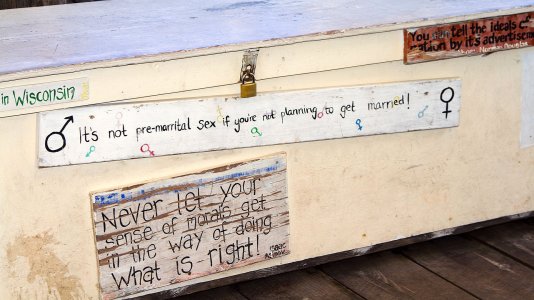 You can tell the ideals of a
nation by it's advertisements
Norman Douglas
in Wisconsin
♂ It's not pre-marrital sex if you're not planning to get married! ♀
Never let your
sense of morals get
in the way of doing
What is right!
ISAAC
ASIMOV